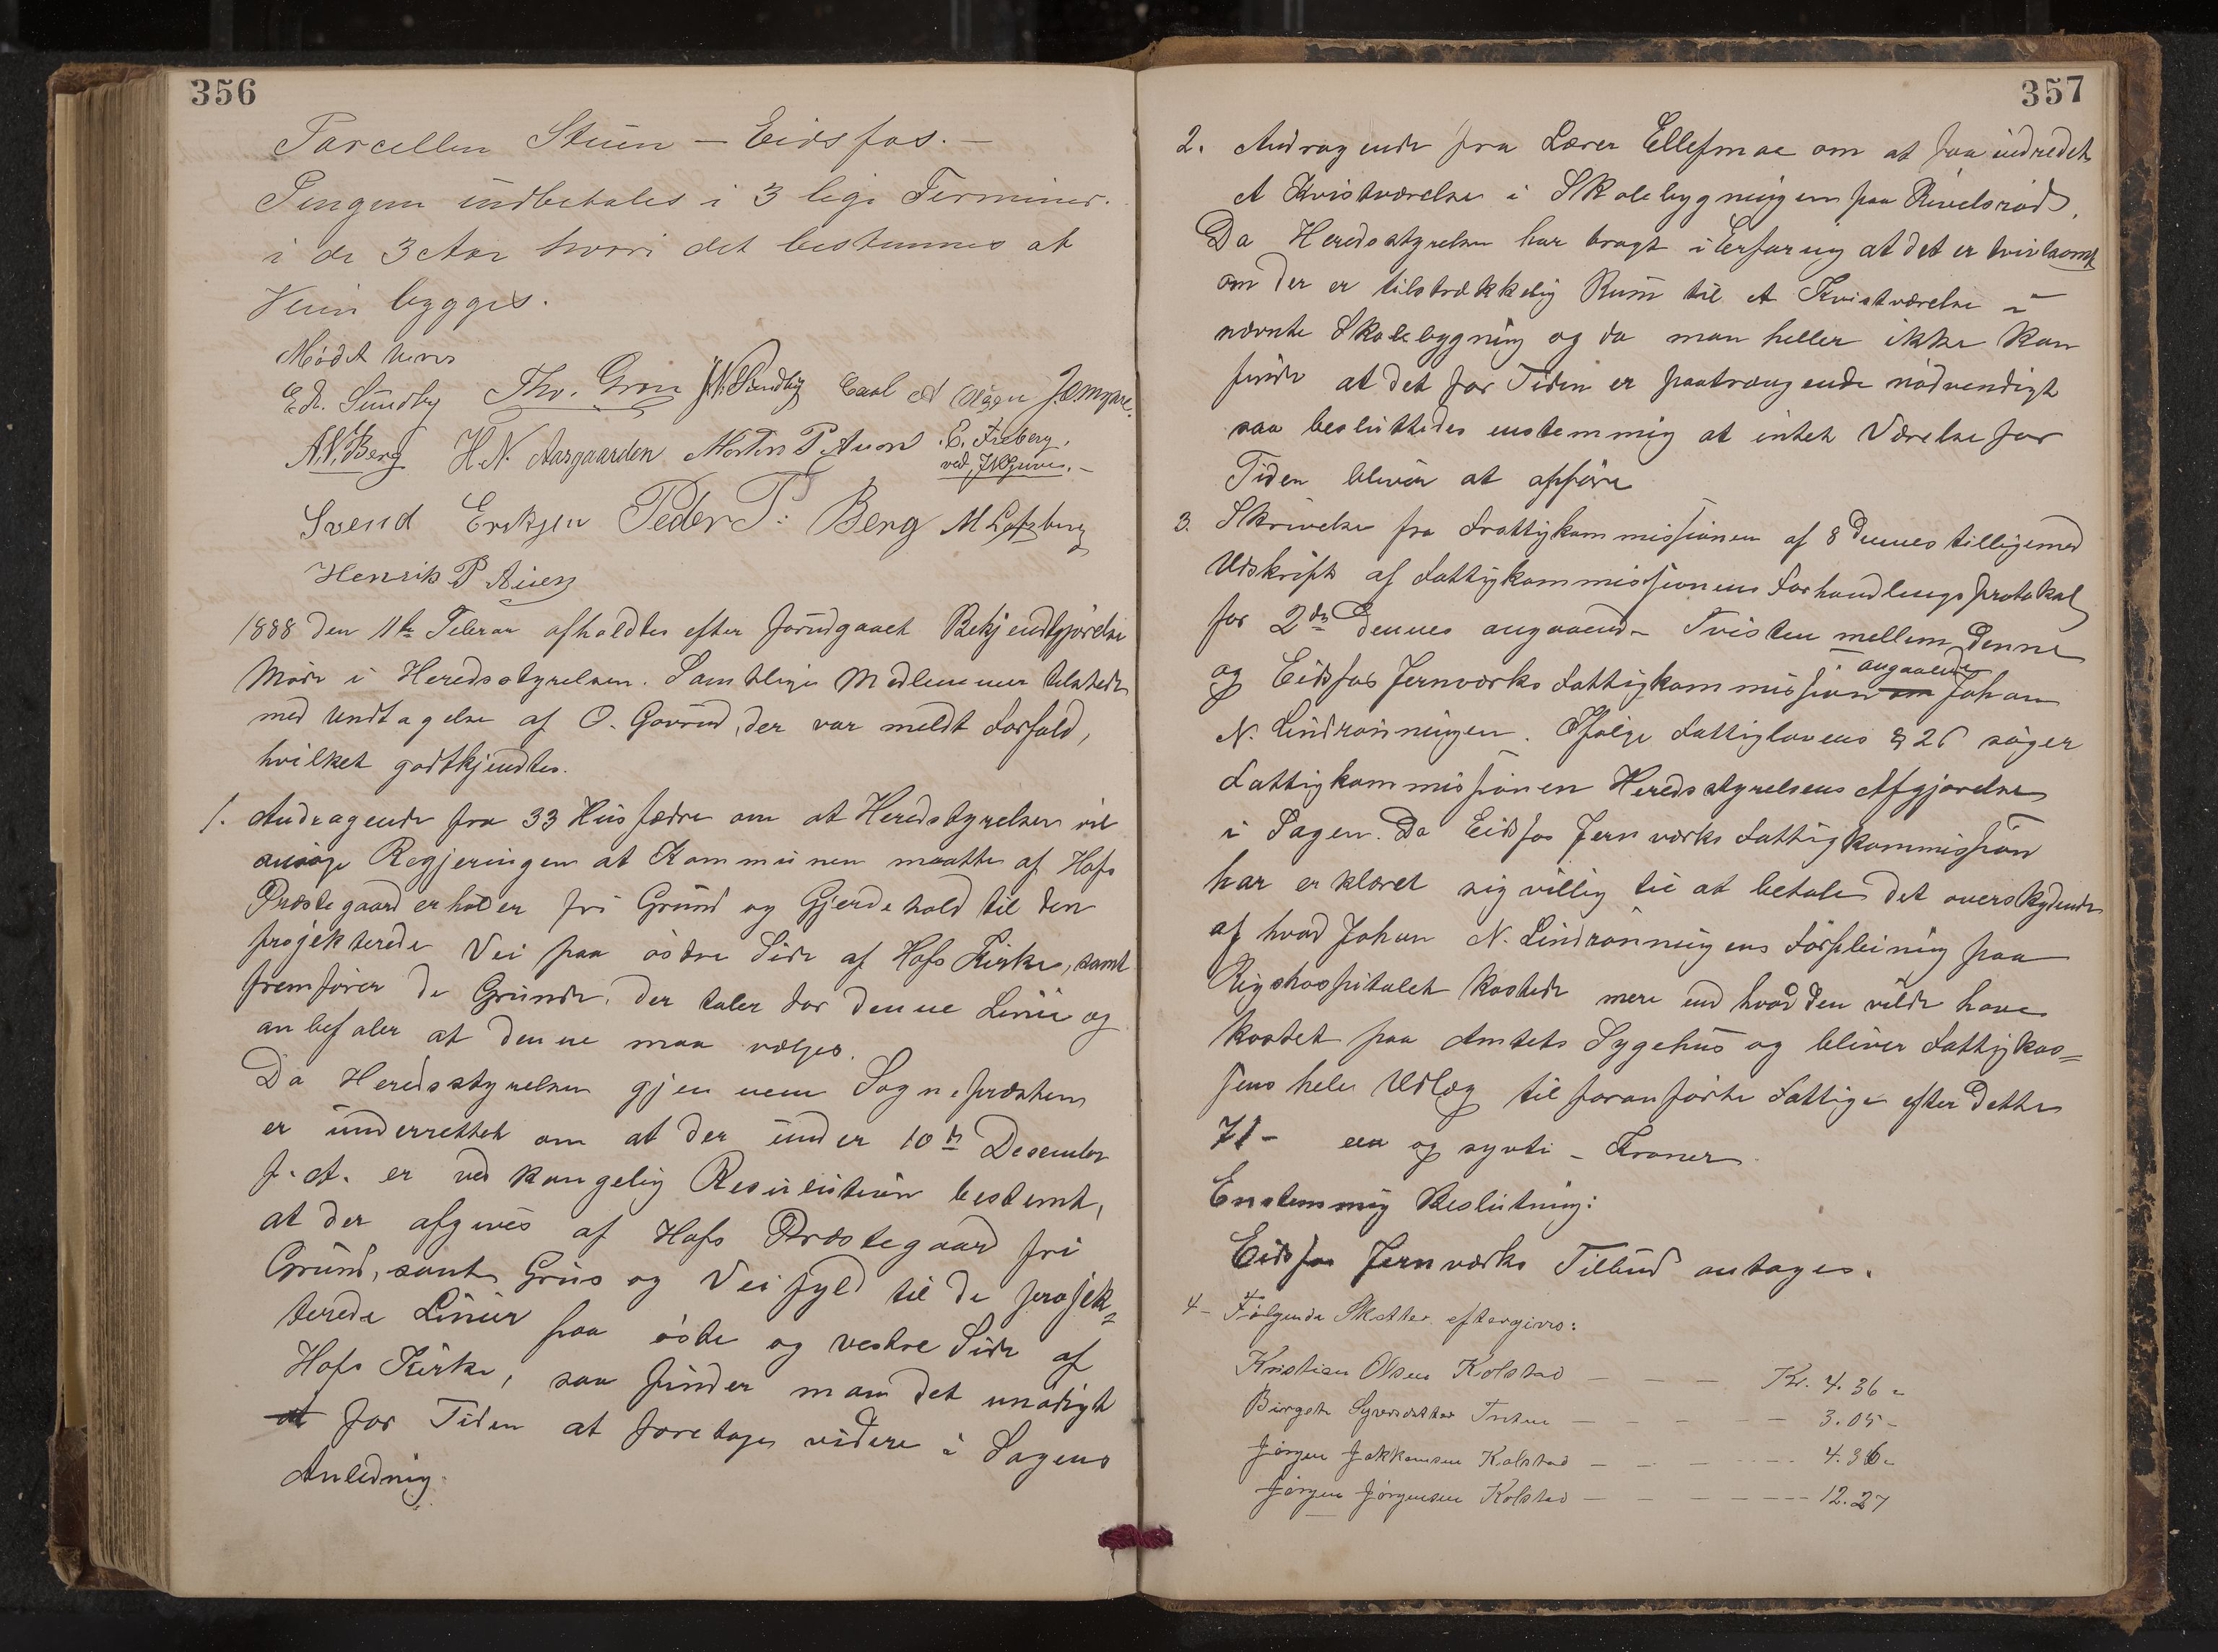 356
Parcellen Stuen – Eidsfos. –
Pengene indbetales i 3 lige Terminer.
i de 3 Aar hvori det bestemmes at
Veien bygges.
Mødet hævet
E.A. Sundby Tho. Gron J.N. Sundby Carl A Olsen
A.N. Berg H.N. Aasgaarden Morten P Auen E. Freberg.
ved
Svend Eriksen Peder P. Berg M Lofsberg
Henrik P Auen
1888 den 11te Februar afholdtes efter forudgaaet Bekjendtgjørelse
Møde i Heredsstyrelsen. Samtlige Medlemmer tilstede
med Undtagelse af O. Gavrud, der var meldt Forfald,
hvilket godtkjendtes.
1. Andragende fra 33 Husfædre om at Heredstyrelsen vil
ansøge Regjeringen at Kommunen maatte af Hofs
Præstegaard erholder fri Grund og Gjerdehold til den
projekterede Vei paa østre Side af Hofs Kirke, samt
fremfører de Grunde, der taler for denne Linie og
anbefaler at denne maa vælges.
Da Heredsstyrelsen gjennem Sognepræsten
er underrettet om at der under 10de Desember
f. A. er ved kongelig Resulution bestemt,
at der afgives af Hofs Præstegaard fri
Grund, samt Grus og Veifyld til de projek=
terede Linier paa øste og vestre Side af
Hofs Kirke, saa finder man det unødigt
at for Tiden at foretage videre i Sagens
Anledning.
357
2. Andragende fra Lærer Ellefmoe om at faa indredet
et Kvistværelse i Skolebygningen paa Rivelsrød.
Da Heredsstyrelsen har bragt i Erfaring at det er tvivlsomt
om der er tilstrækkelig Rum til et Kvistværelse i
nævnte Skolebygning og da man heller ikke kan
finde at det for Tiden er paatrængende nødvendigt
saa besluttedes enstemmig at intet Værelse for
Tiden bliver at opføre
3. Skrivelse fra Fattigkommissionen af 8 Dennes tilligemed
Udskrift af Fattigkommissionens Forhandlingsprotokol
for 2den Dennes angaaende Tvisten mellem Denne
og Eidsfos Jernværks Fattigkommission om angaaende Johan
N. Lindrønningen. Ifølge Fattiglovens § 26 søger
Fattigkommissionen Heredsstyrelsens Afgjørelse
i Sagen. Da Eidsfos Jernværks Fattigkommission
har erklæret sig villig til at betale det overskydende
af hvad Johan N. Lindrønningens Forpleining paa
Rigshospitalet kostede mere end hvad den vilde have
kostet paa Amtets Sygehus og bliver Fattigkas=
sens hele Udlæg til foranførte Fattige efter dette
71 – een og syvti – Kroner.
Enstemmig Beslutning:
Eidsfos Jernværks Tilbud antages.
4 – Følgende Skatter eftergives:
Kristian Olsen Kolstad – – – Kr. 4.36 –
Birgete Syversdatter – – – – 3.05 –
Jørgen Jakkomsen Kolstad – – – – 4.36 –
Jørgen Jørgensen Kolstad – – – – 12.27